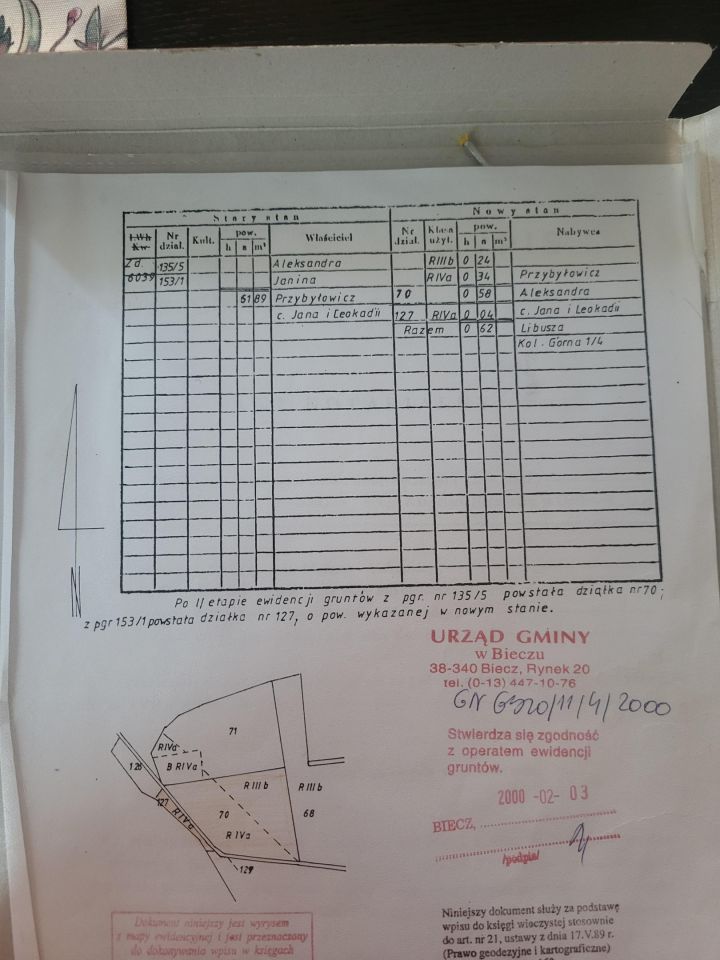 Stary stan Nowy stan
LWh Kw Nr dział. Kult. pow. h a m² Właściciel Nr dział. Klasa użyt. pow. h a m² Nabywca
Zd. 135/5 Aleksandra RIIIb 0 24
6039 153/1 Janina RIVa 0 34 Przybyłowicz
61 89 Przybyłowicz 70 0 58 Aleksandra
c. Jana i Leokadii 127 RIVa 0 04 c. Jana i Leokadii
Razem 0 62 Libusza
Kol. Górna 1/4
Po II etapie ewidencji gruntów z pgr. nr 135/5 powstała działka nr 70;
z pgr 153/1 powstała działka nr 127, o pow. wykazanej w nowym stanie.
N
URZĄD GMINY
w Bieczu
38-340 Biecz, Rynek 20
tel. (0-13) 447-10-76
GN G520/11/4/2000
Stwierdza się zgodność
z operatem ewidencji
gruntów.
2000 -02- 03
BIECZ,
/podpis/
71
RIVa
B RIVa
126
127
RIVa
RIIIb
RIIIb
70
68
RIVa
129
Dokument niniejszy jest wyrysem
z mapy ewidencyjnej i jest przeznaczony
do dokonywania wpisu w księgach
Niniejszy dokument służy za podstawę
wpisu do księgi wieczystej stosownie
do art. nr 21, ustawy z dnia 17.V.89 r.
(Prawo geodezyjne i kartograficzne)